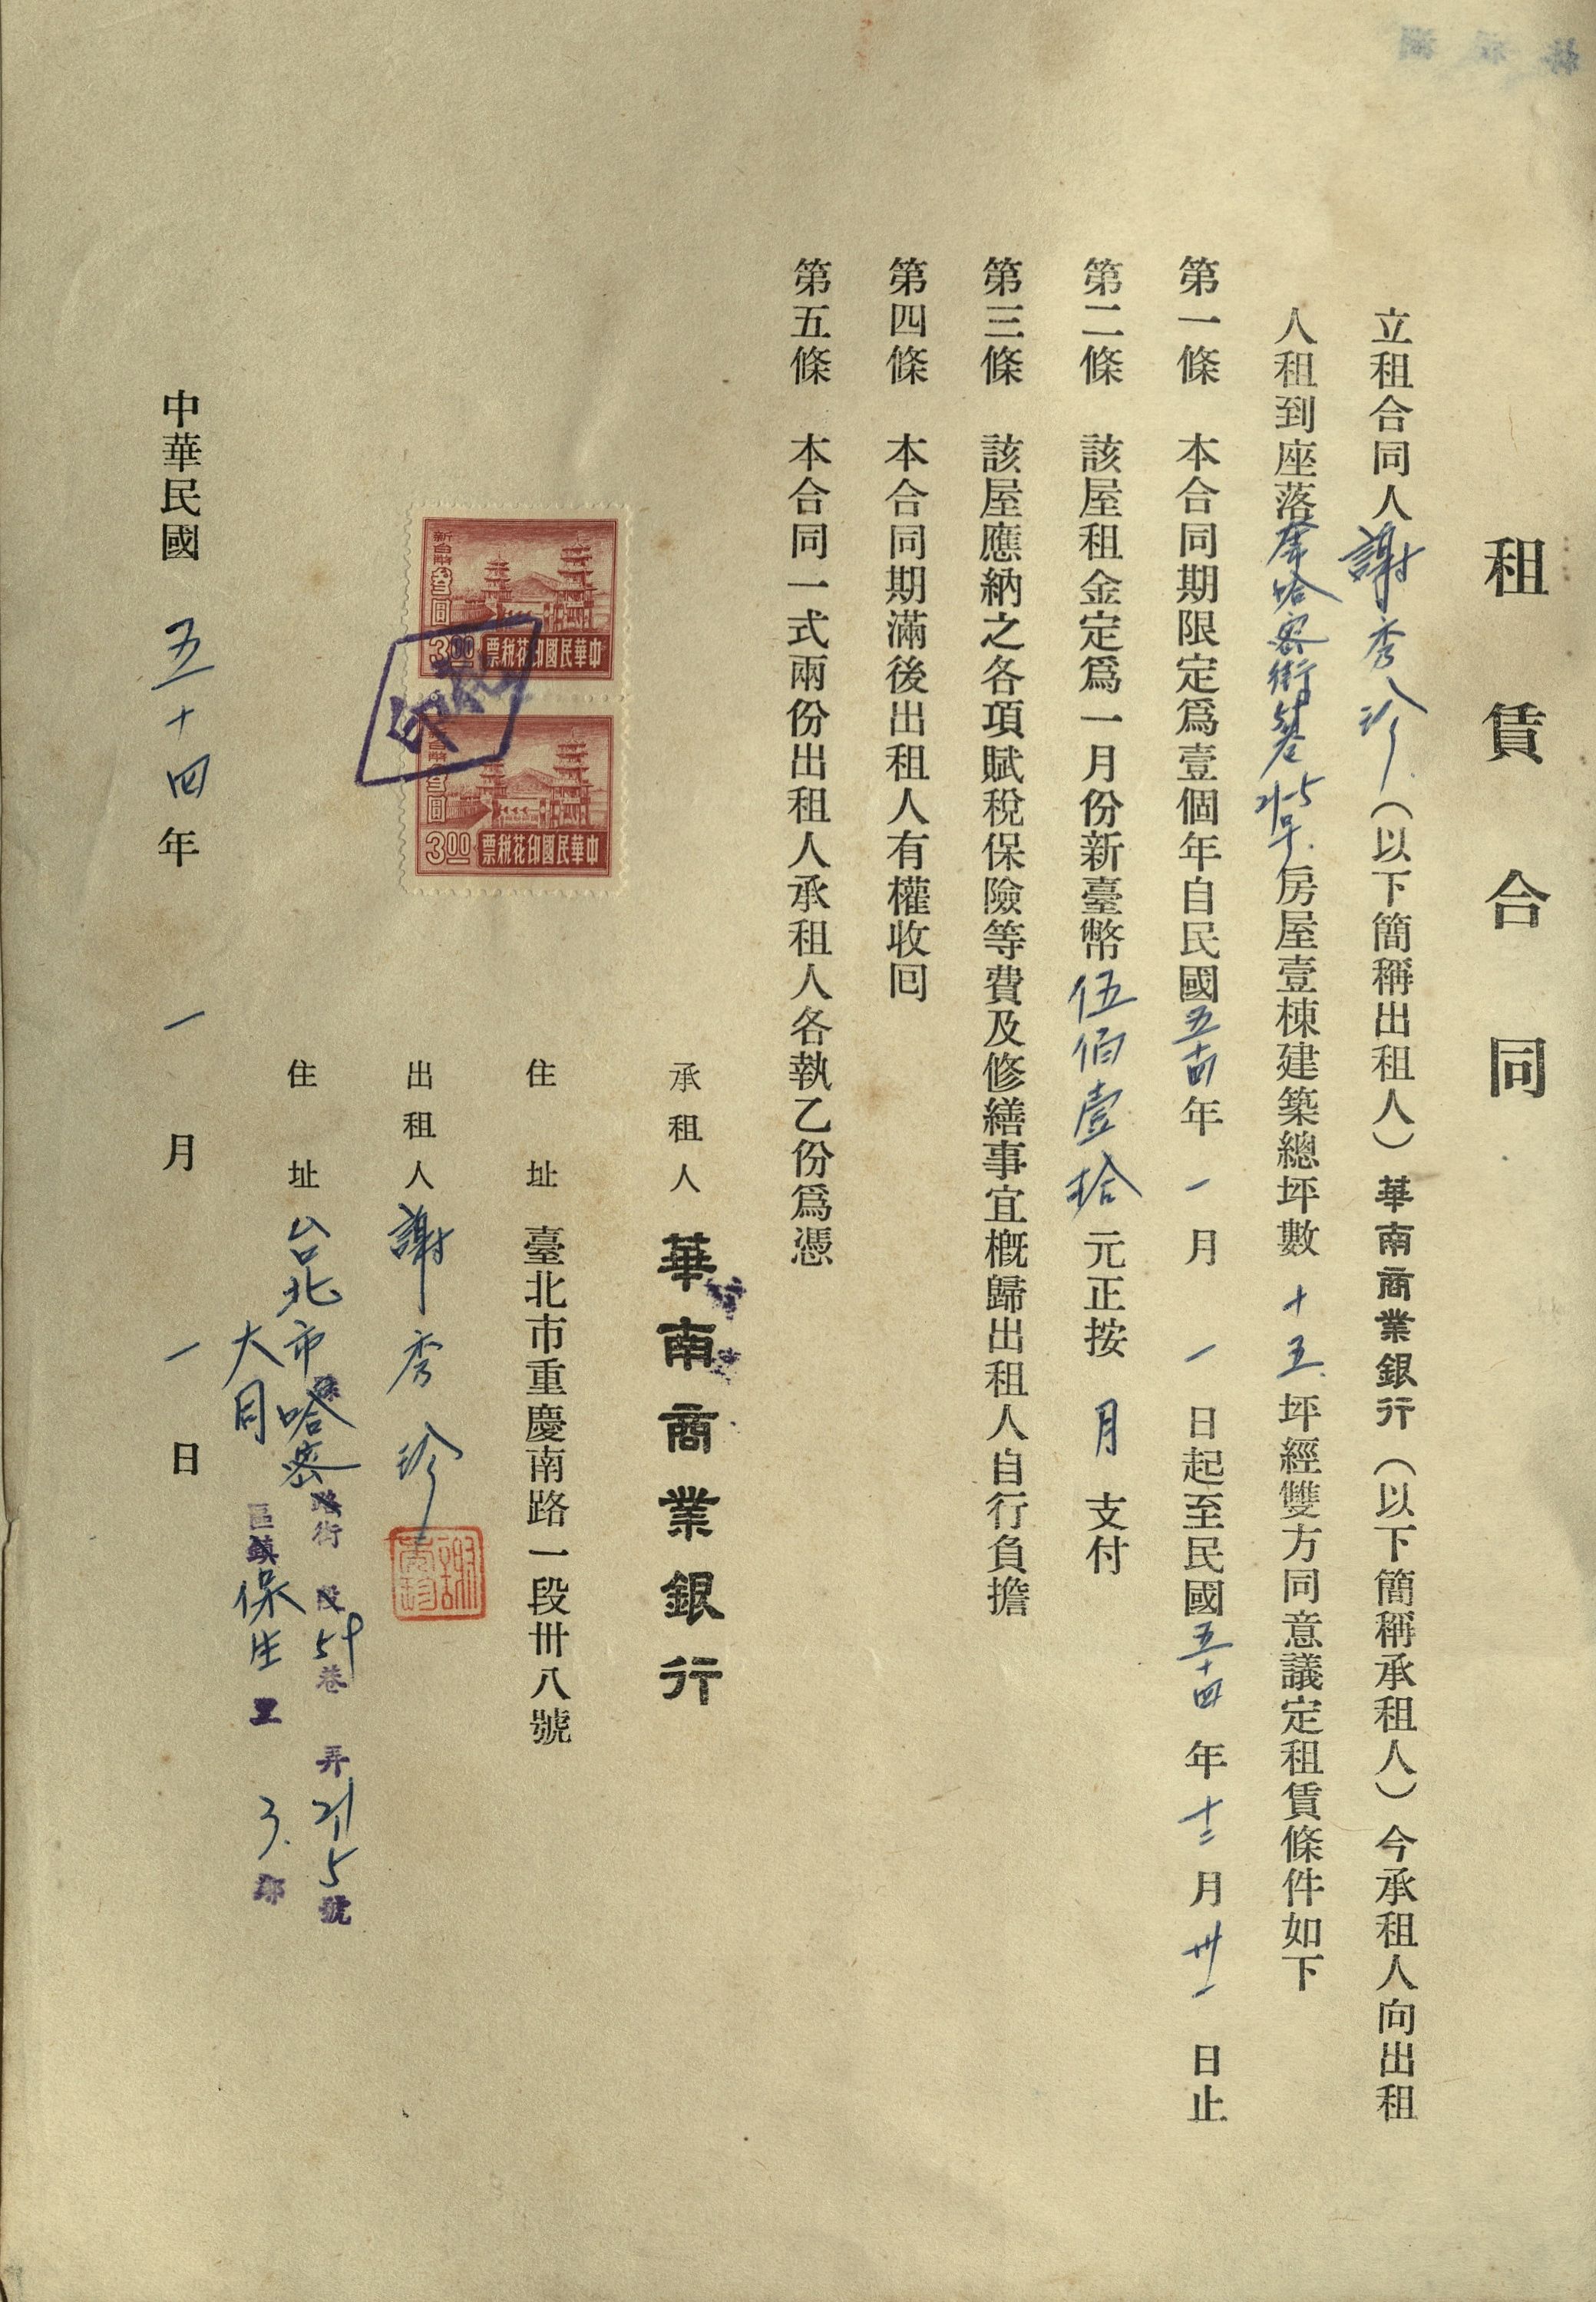 租賃合同
立租合同人謝秀珍(以下簡稱出租人)華南商業銀行(以下簡稱承租人)今承租人向出租
人租到座落哈密街房屋壹棟建築總坪數十五坪經雙方同意議定租賃條件如下
第一條 本合同期限定爲壹個年自民國五十四年一月一日起至民國五十四年十二月卅一日止
第二條 該屋租金定爲一月份新臺幣伍佰壹拾元正按月支付
第三條 該屋應納之各項賦稅保險等費及修繕事宜槪歸出租人自行負擔
第四條 本合同期滿後出租人有權收回
第五條 本合同一式兩份出租人承租人各執乙份爲憑
承租人 華南商業銀行
住址 臺北市重慶南路一段卅八號
新台幣叁圓
3.00
中華民國印花稅票
新台幣叁圓
3.00
中華民國印花稅票
出租人 謝秀珍
謝秀珍
住址 台北市哈密街59巷弄21-5號
大同區鎮保生里3鄰
中華民國五十四年一月一日